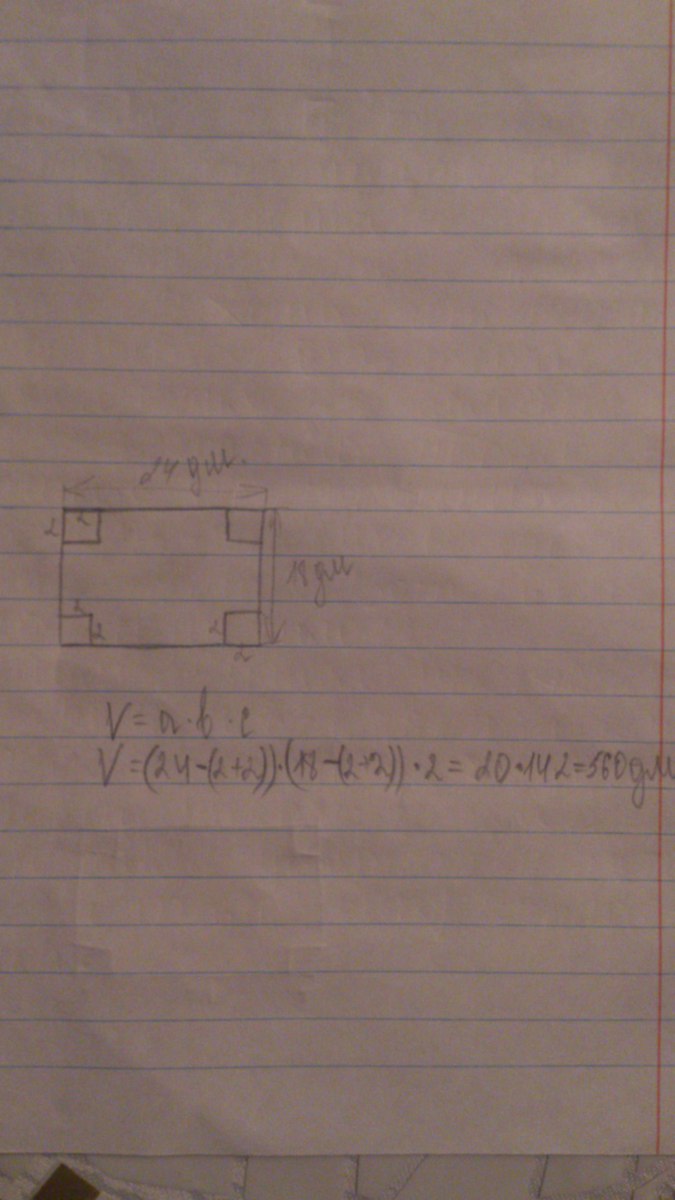 24 дм.
2 2
18 дм
2
2 2
2
V = a · b · c
V = (24-(2+2))·(18-(2+2))·2 = 20·14·2=560дм